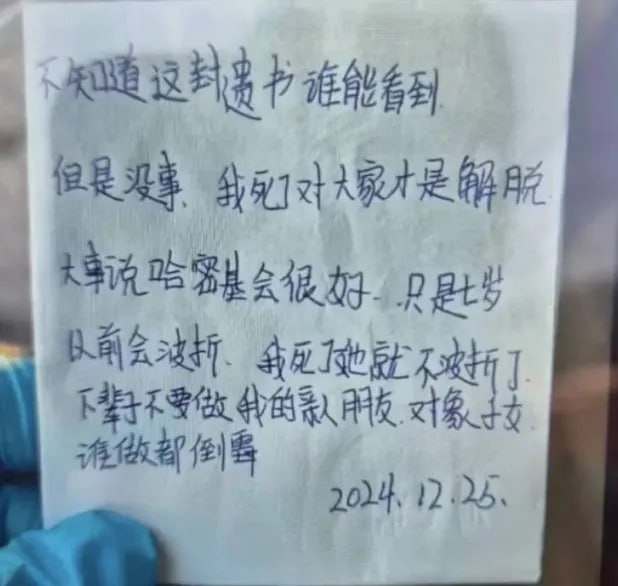 不知道这封遗书谁能看到
但是没事、我死了对大家才是解脱.
大事说哈密基会很好、只是七岁
以前会波折、我死了她就不波折了.
下辈子不要做我的亲人朋友.对象子女.
谁做都倒霉
2024.12.25.